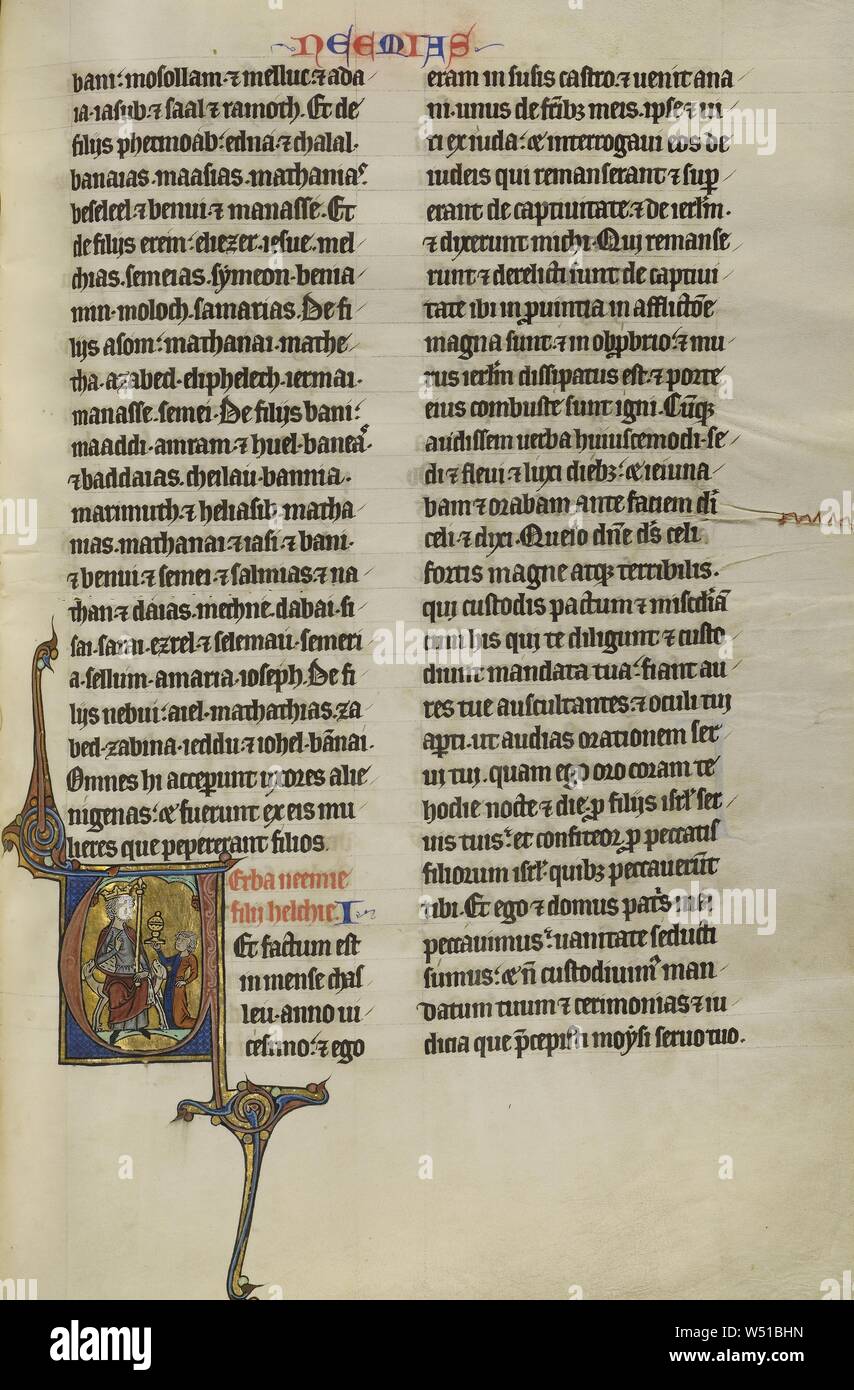 NEEMIAS
bani: mosollam ⁊ melluc ⁊ ada
ia iasub ⁊ saal ⁊ ramoth. Et de
filijs phetmoab: edna ⁊ chalal.
banaias. maasias. mathanias.
beseleel ⁊ bennui ⁊ manasse. Et
de filijs erem: eliezer. iesue. mel
chias. semeias. symeon. benia
min. moloch. samarias. De fi
lijs asom: mathanai. mathe
tha. azabed. eliphelech. iermai.
manasse. semei. De filijs bani:
maaddi. amram. ⁊ huel. baneas.
⁊ baddaias. cheilau. bannia.
marimuth ⁊ heliasib. matha
nias. mathanai ⁊ iasi ⁊ bani.
⁊ bennui ⁊ semei ⁊ salmias ⁊ na
than ⁊ daias. mechne. dabai. si
sai. sarai. ezrel ⁊ selemau. semeri
a. sellum. amaria. ioseph. De fi
lijs nebui: aiel. mathathias. za
bed. zabina. ieddu ⁊ iohel. bānai.
Omnes hi acceperunt uxores alie
nigenas: ⁊ fuerunt ex eis mu
lieres que pepererant filios.
Verba neemie
filij helchie. I
Et factum est
in mense chas
leu. anno ui
cesimo: ⁊ ego
eram in susis castro. ⁊ uenit ana
ni. unus de frībȝ meis. ipse ⁊ ui
ri ex iuda: ⁊ interrogaui eos de
iudeis qui remanserant ⁊ sup
erant de captiuitate ⁊ de ierlm̄.
⁊ dixerunt michi. Qui remanse
runt ⁊ derelicti sunt de captiui
tate ibi in prouintia in afflictōe
magna sunt ⁊ in obprobrio: ⁊ mu
rus ierlm̄ dissipatus est. ⁊ porte
eius combuste sunt igni. Cūqȝ
audissem uerba huiuscemodi. se
di ⁊ fleui ⁊ luxi diebȝ: ⁊ ieiuna
bam ⁊ orabam ante faciem dī
celi ⁊ dixi. Queso dn̄e ds̄ celi
fortis magne atqȝ terribilis.
qui custodis pactum ⁊ misc̄diam
cum his qui te diligunt ⁊ custo
diunt mandata tua: fiant au
res tue auscultantes ⁊ oculi tui
apti. ut audias orationem ser
ui tui. quam ego oro coram te
hodie nocte ⁊ die p filijs isrl̄ ser
uis tuis: et confiteor p peccatis
filiorum isrl̄ quibȝ peccauerūt
tibi. Et ego ⁊ domus patris mei
peccauimus: uanitate seducti
sumus: ⁊ n̄ custodiuimus man
datum tuum ⁊ cerimonias ⁊ iu
dicia que p̄cepisti moysi seruo tuo.
alamy
Image ID: W51BHN
www.alamy.com